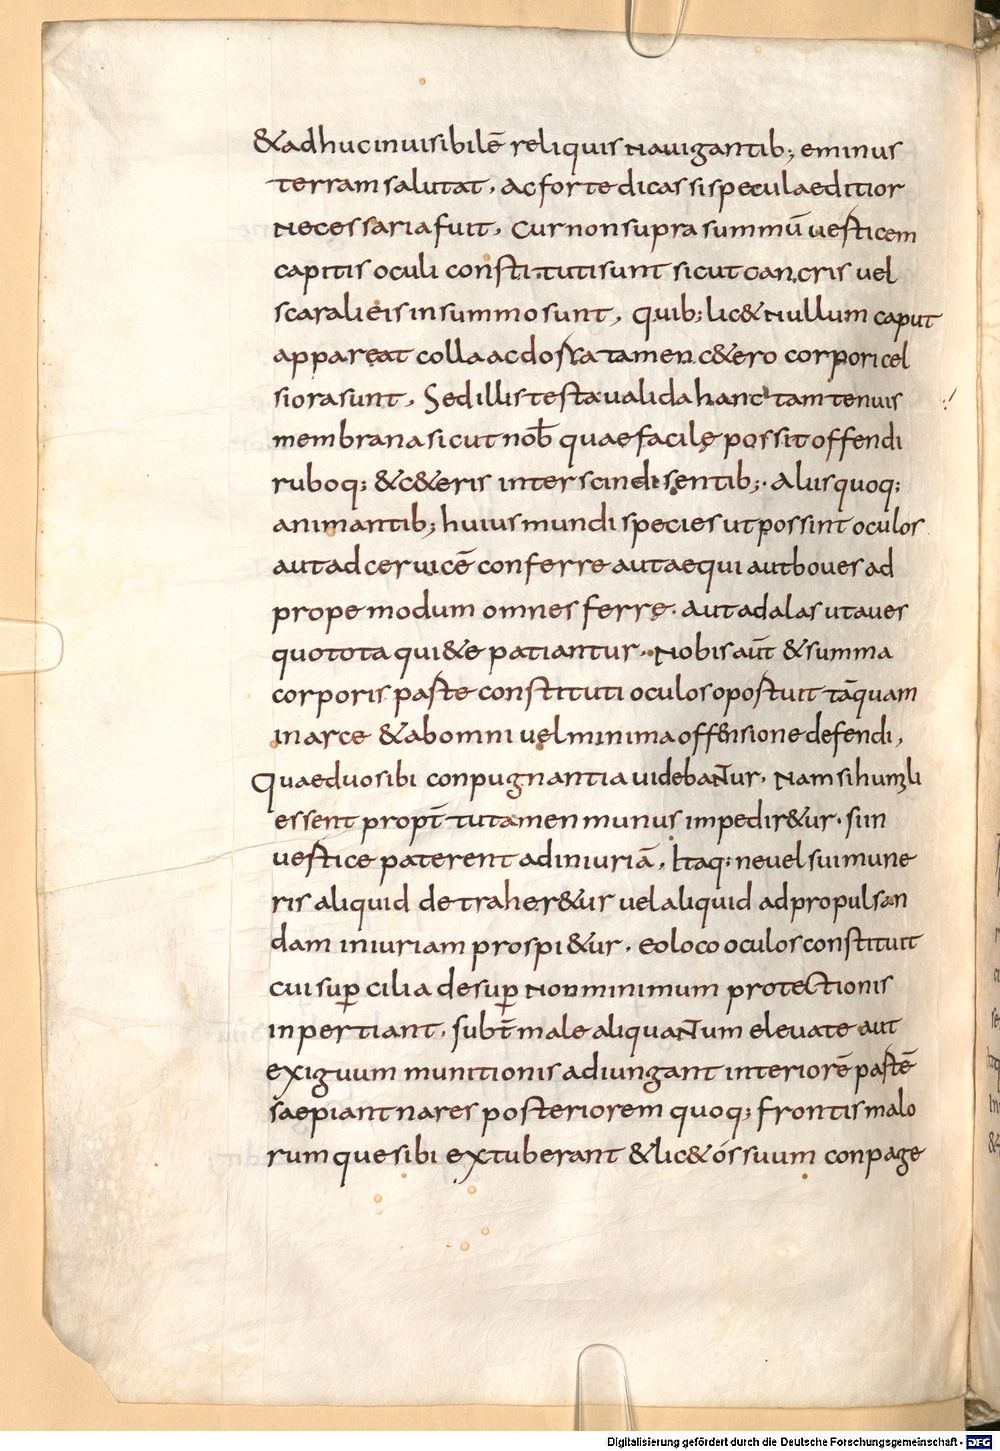 &adhucinuisibilē reliquis nauigantib; eminus
terramsalutat, acforte dicas sispeculaeditior
necessariafuit, Curnonsupra summū uerticem
capitis oculi constitutisunt sicut cancris uel
scaralieis insummosunt, quib; lic& nullum caput
appareat collaacdorsa tamen c&ero corpori cel
siorasunt, Sedillis testaualidahanc tam tenuis
membranasicut nob̄ quaefacile possit offendi
ruboq; &c&eris interscindi sentib;. Aliis quoq;
animantib; huius mundi species ut possint oculos
autad ceruicē conferre autaequi autboues ad
prope modum omnes ferre. autadalas utaues
quotota qui&e patiantur. Nobis aūt &summa
corporis parte constituti oculos opostuit tāquam
inarce &abomni uelminima offensione defendi,
Quaeduosibi conpugnantia uidebantur. Nam sihumili
essent propt̄ tutamen munus impedir&ur. siin
uertice paterent adiniuriā, Itaq; neuel suimune
ris aliquid detraher&ur uel aliquid adpropulsan
dam iniuriam prospi&ur. eoloco oculos constituit
cui sup cilia desup non minimum protectionis
inpertiant, subt̄ male aliquantum eleuate aut
exiguum munitionis adiungant interiorē partē
saepiantnares posteriorem quoq; frontis malo
rum quesibi extuberant &lic& óssuum conpage
Digitalisierung gefördert durch die Deutsche Forschungsgemeinschaft - DFG